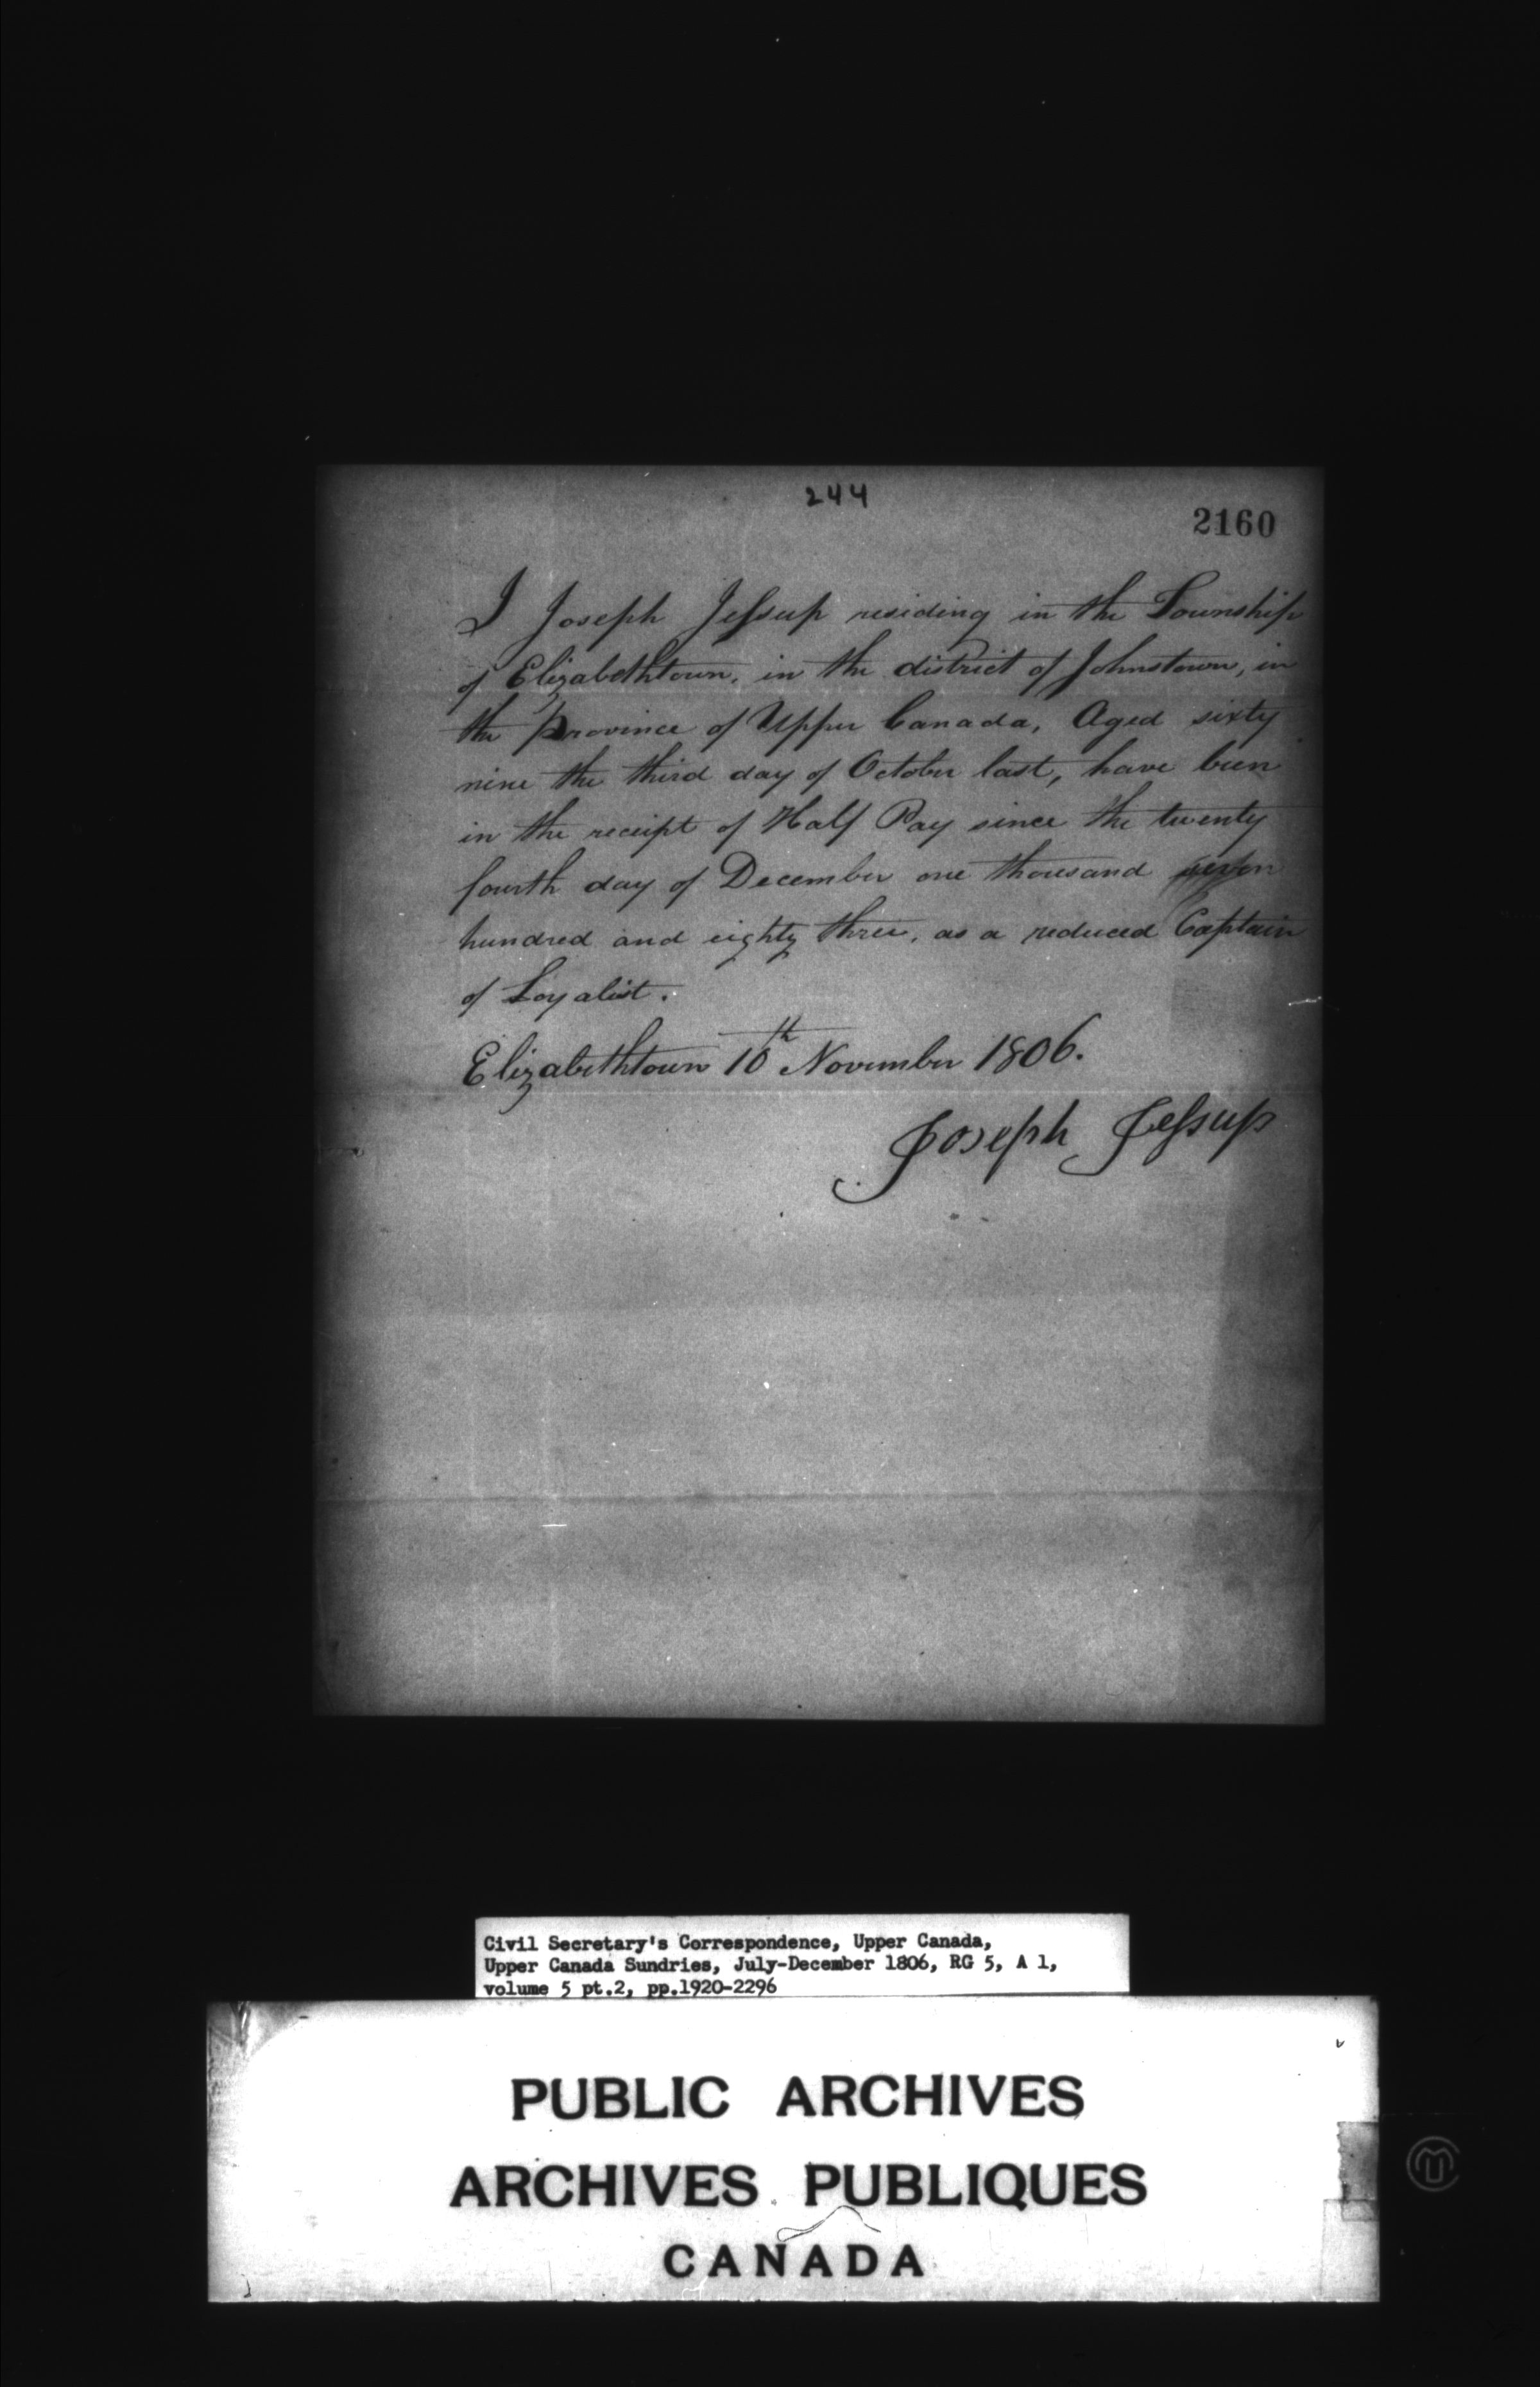 244
2160
I Joseph Jessup residing in the Township
of Elizabethtown, in the district of Johnstown, in
the Province of Upper Canada, Aged sixty
nine the third day of October last, have been
in the receipt of Half Pay since the twenty
fourth day of December one thousand seven
hundred and eighty three, as a reduced Captain
of Loyalist.
Elizabethtown 10th November 1806.
Joseph Jessup
Civil Secretary's Correspondence, Upper Canada,
Upper Canada Sundries, July-December 1806, RG 5, A 1,
volume 5 pt.2, pp.1920-2296
PUBLIC ARCHIVES
ARCHIVES PUBLIQUES
CANADA